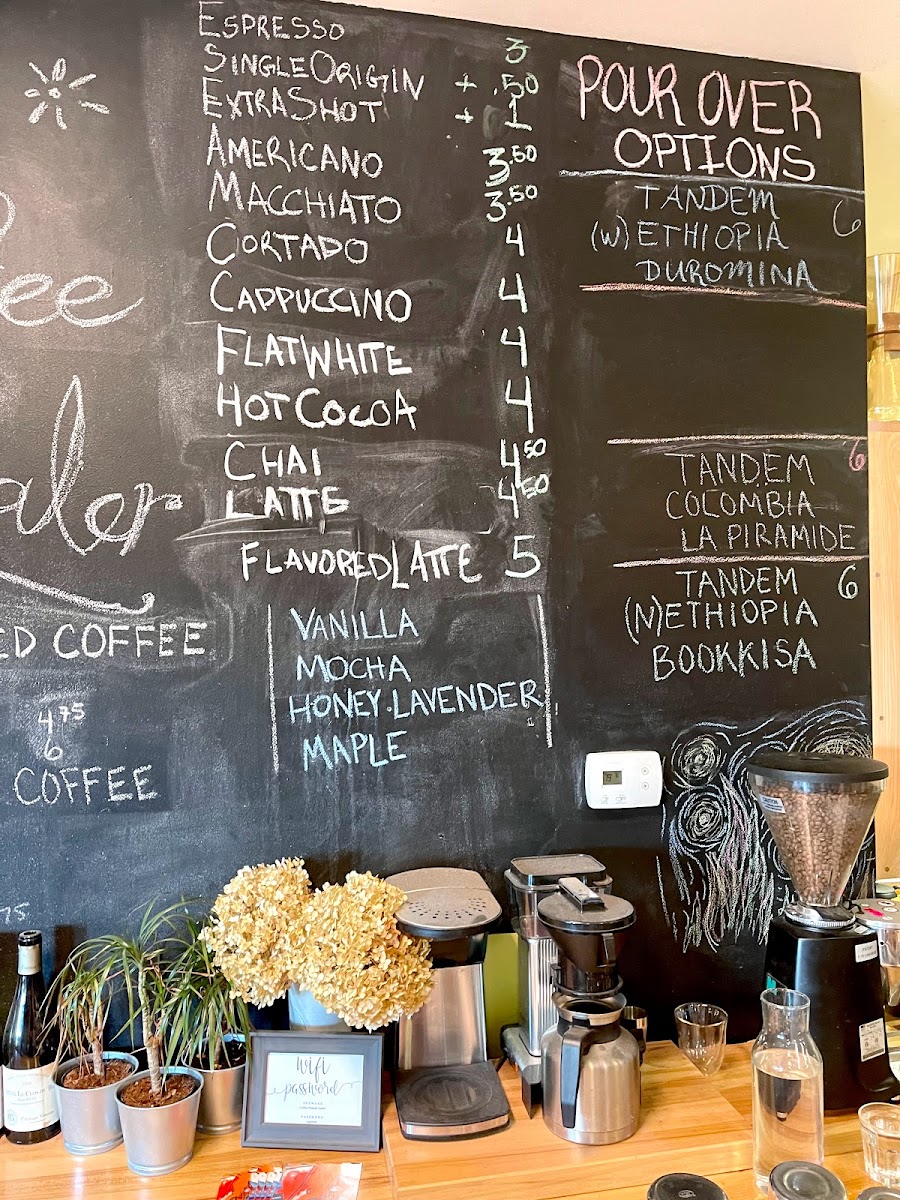 ESPRESSO 3
SINGLE ORIGIN + .50
EXTRA SHOT + 1
AMERICANO 3.50
MACCHIATO 3.50
CORTADO 4
CAPPUCCINO 4
FLAT WHITE 4
HOT COCOA 4
CHAI 4 50
LATTE 4 50
FLAVORED LATTE 5
VANILLA
MOCHA
HONEY·LAVENDER
MAPLE
POUR OVER
OPTIONS
TANDEM 6
(W) ETHIOPIA
DUROMINA
TANDEM 6
COCOMBIA
LA PIRAMIDE
TANDEM 6
(N) ETHIOPIA
BOOKKISA
ee
aler
ED COFFEE
4 75
6
COFFEE
75
wifi
password